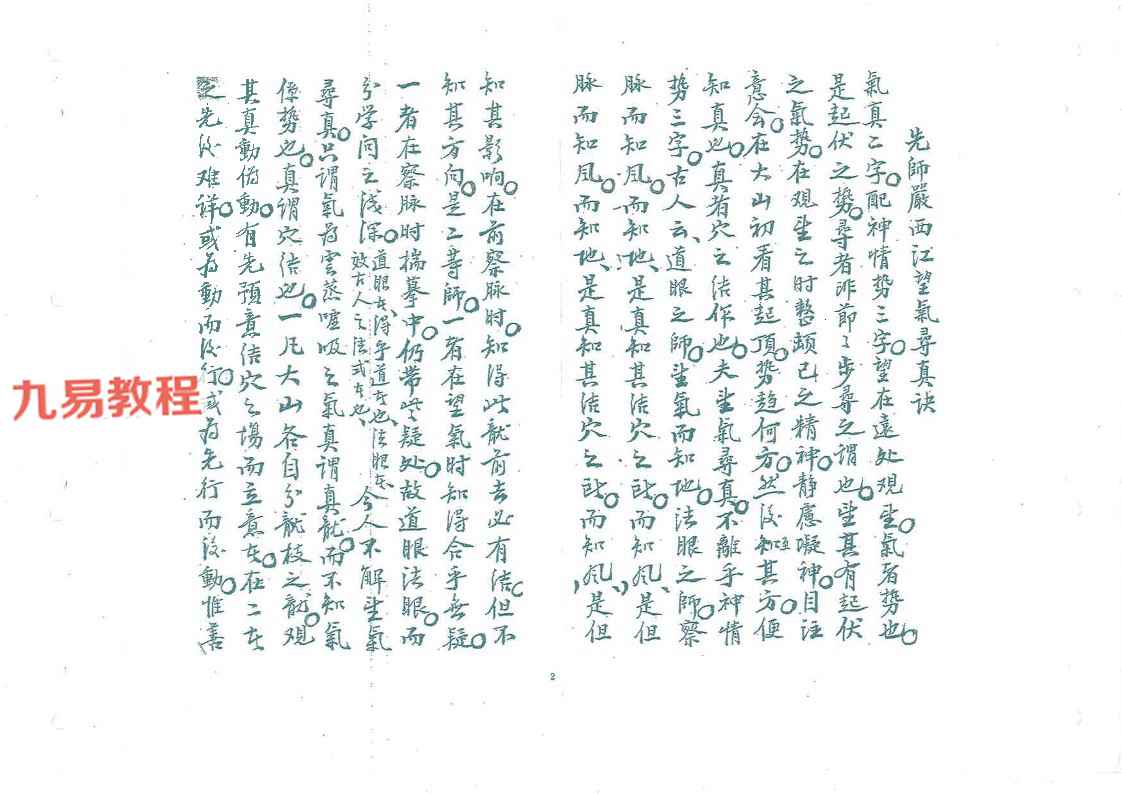 先師嚴西江望氣尋真訣
氣真二字。配神情勢三字。望在遠处观望。氣者勢也。
是起伏之勢。尋者昨節々步尋之謂也。望其有起伏
之氣勢。在观望之时。整頓已之精神。靜慮凝神。目注
意会。在大山初看其起頂。勢趋何方。然後知其方。便
知真也。真者穴之结作也。夫望氣尋真。不離乎神情
勢三字。古人云、道眼之師。望氣而知地。法眼之師。察
脉而知風。而知地、是真知其结穴之所。而知風、是但
脉而知風。而知地、是真知其结穴之所。而知風、是但
知其影响。在前察脉时。知得此龍前去必有结。但不
知其方向。是二等師。一者在望氣时知得合乎無疑。
一者在察脉时揣摹中。仍带些疑处。故道眼法眼。而
分学问之浅深。道眼在、得乎道在也、法眼在、
效古人之法或在也、今人不解望氣
尋真。只謂氣为雲蒸噓吸之氣。真謂真龍。而不知氣
係勢也。真謂穴结也。一凡大山各自分龍枝之龍。观
其真動偽動。有先預意结穴之場而立意在。在二在
之先後难詳。或为動而後行。或为先行而後動。惟善
2
九易教程